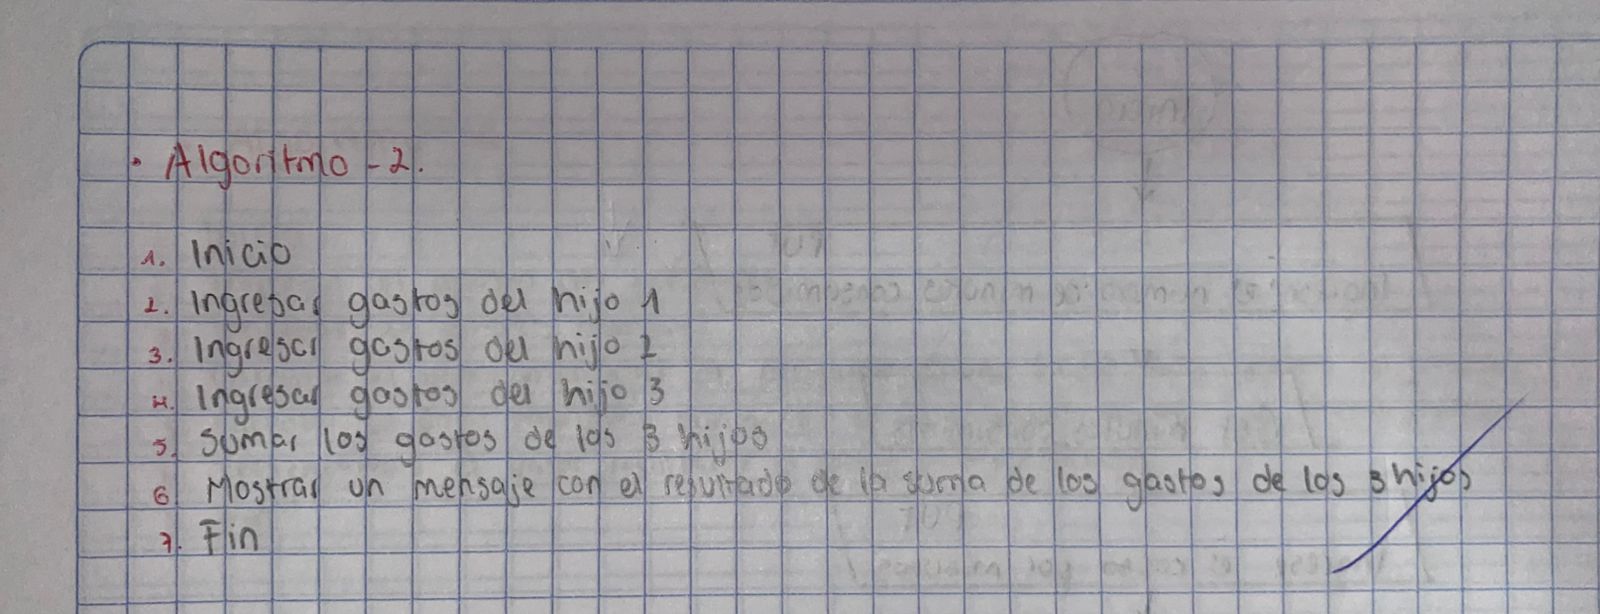 • Algoritmo - 2.
1. Inicio
2. Ingresar gastos del hijo 1
3. Ingresar gastos del hijo 2
4. Ingresar gastos del hijo 3
5. Sumar los gastos de los 3 hijos
6. Mostrar un mensaje con el resultado de la suma de los gastos de los 3 hijos
7. Fin